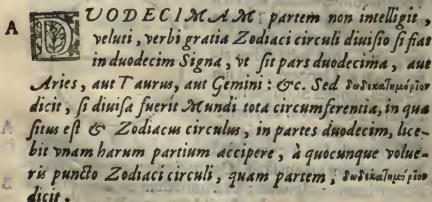 A DUODECIMAM partem non intelligit,
veluti, verbi gratia Zodiaci circuli diuisio si fiat
in duodecim Signa, vt sit pars duodecima, aut
Aries, aut Taurus, aut Gemini: &c. Sed δωδεκατημόριον
dicit, si diuisa fuerit Mundi tota circumferentia, in qua
situs est & Zodiacus circulus, in partes duodecim, lice-
bit vnam harum partium accipere, à quocunque volue-
ris puncto Zodiaci circuli, quam partem, δωδεκατημόριον
dicit,